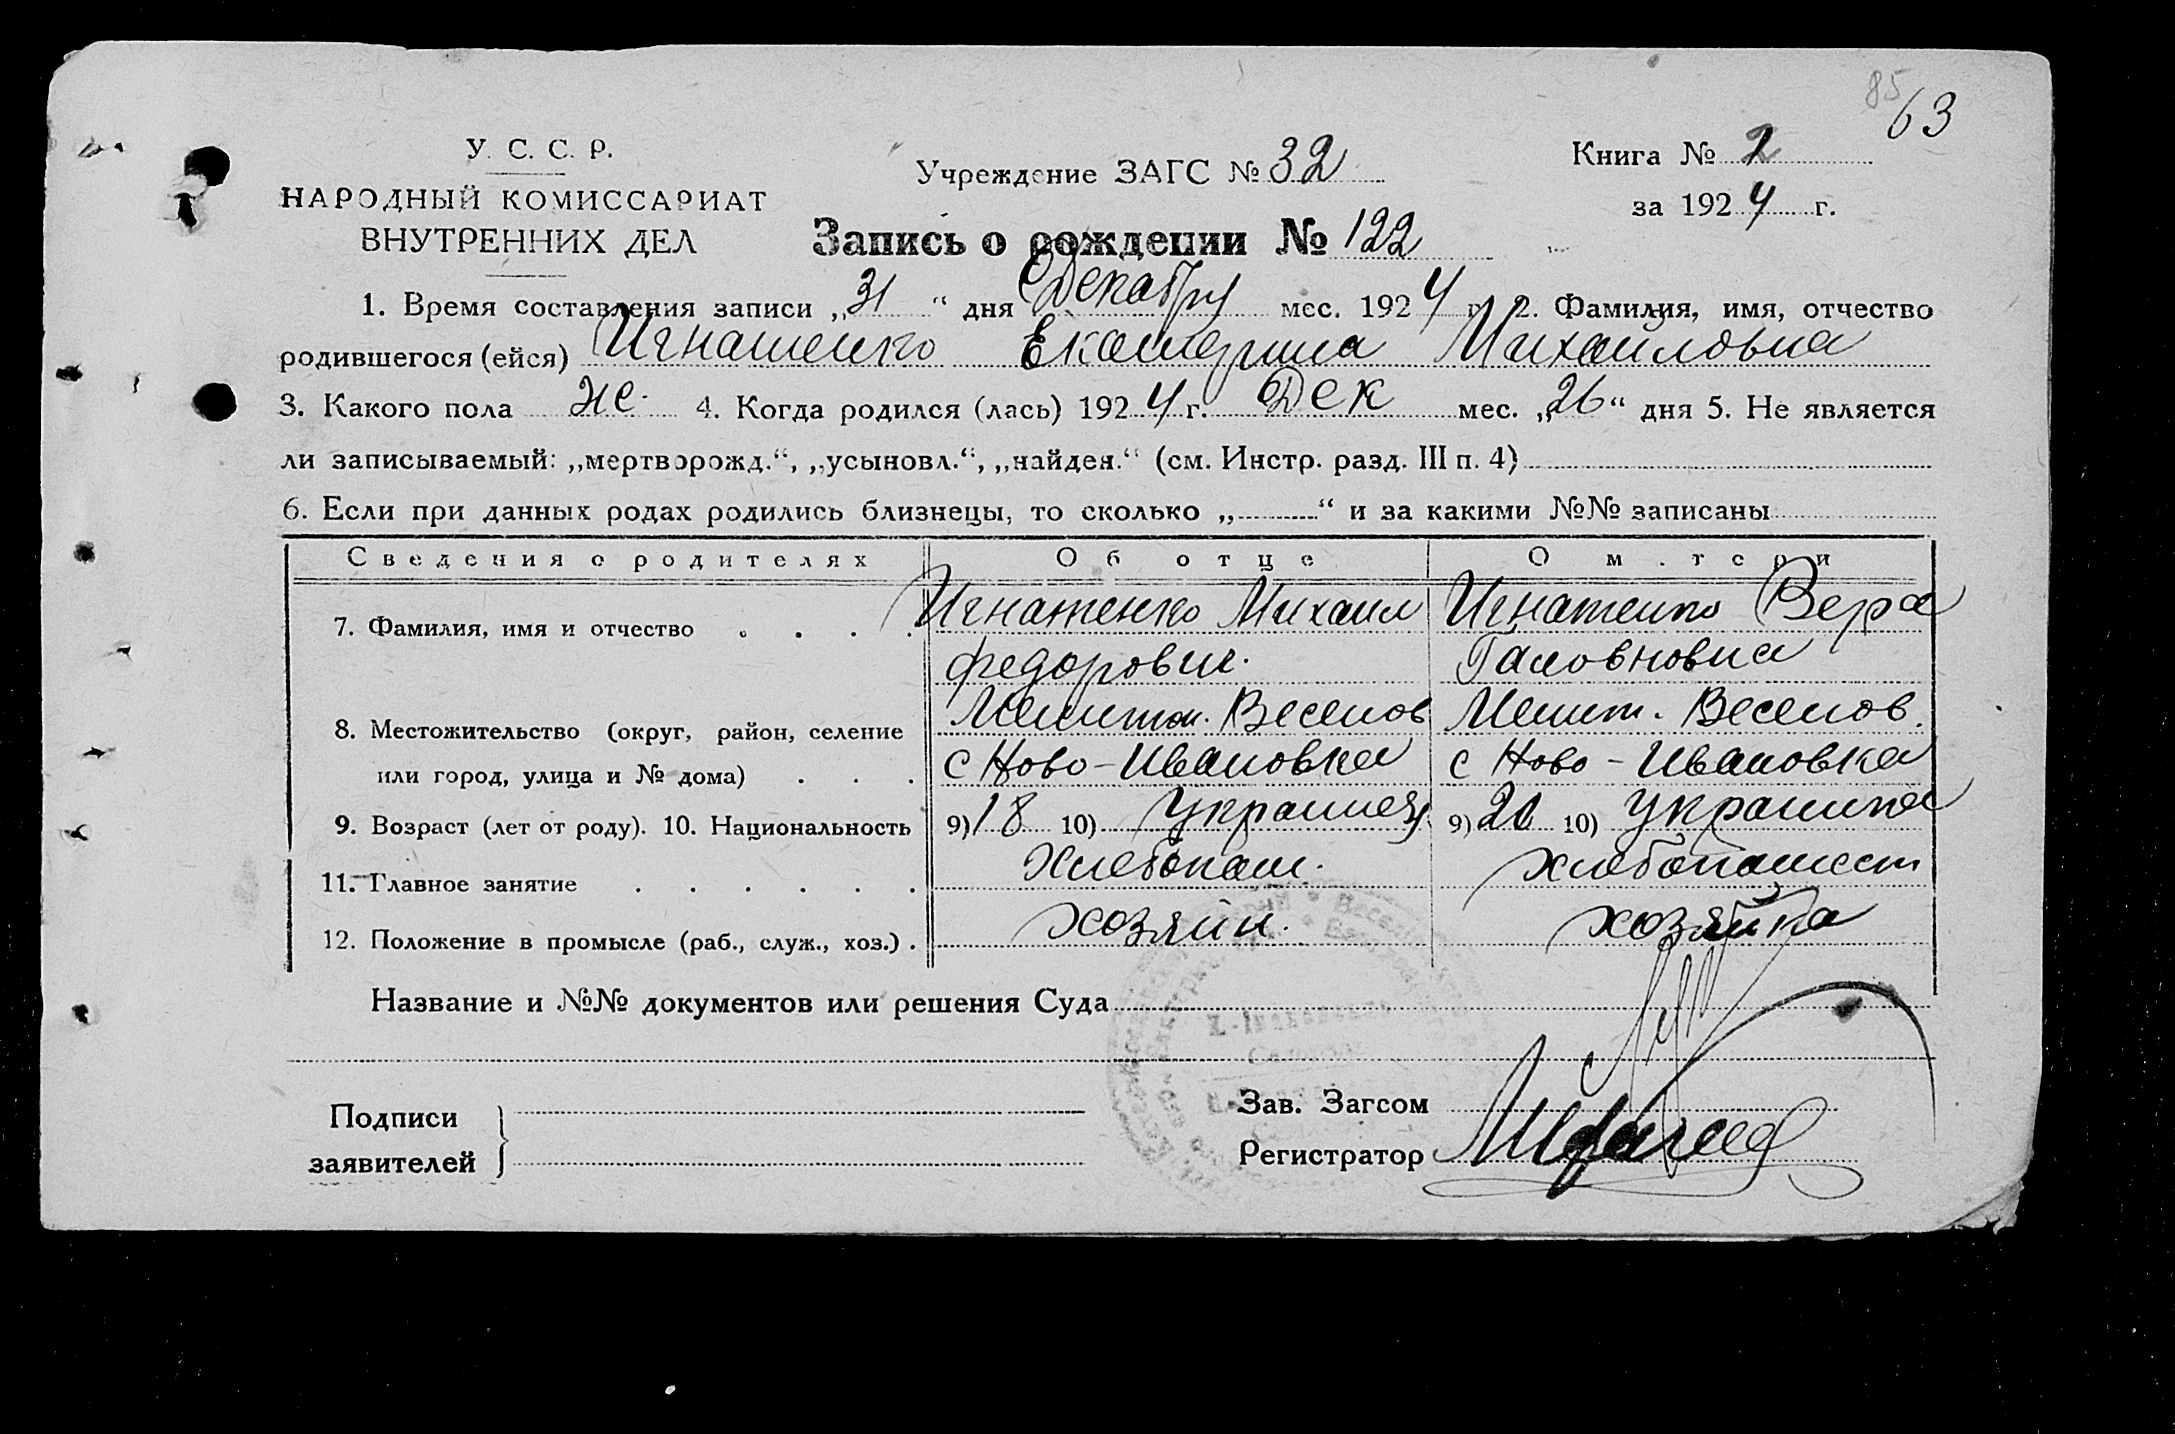 85
63
У. С. С. Р.
НАРОДНЫЙ КОМИССАРИАТ
ВНУТРЕННИХ ДЕЛ
Учреждение ЗАГС № 32
Книга № 2
за 1924 г.
Запись о рождении № 122
1. Время составления записи „31“ дня Декабря мес. 1924 г. 2. Фамилия, имя, отчество
родившегося (ейся) Игнатенко Екатерина Михайловна
3. Какого пола же. 4. Когда родился (лась) 1924 г. Дек мес. „26“ дня 5. Не является
ли записываемый: „мертворожд.“, „усыновл.“, „найден.“ (см. Инстр. разд. III п. 4)
6. Если при данных родах родились близнецы, то сколько „ “ и за какими №№ записаны
Сведения о родителях Об отце О матери
7. Фамилия, имя и отчество Игнатенко Михаил Игнатенко Вера
Федорович.
8. Местожительство (округ, район, селение Мелитоп. Веселов Мелит. Веселов.
или город, улица и № дома) с Ново-Ивановка с Ново-Ивановка
9. Возраст (лет от роду). 10. Национальность 9) 18 10) Украинец 9) 20 10) Украинка
11. Главное занятие Хлебопаш. хлебопашест
12. Положение в промысле (раб., служ., хоз.) хозяин. хозяйка
Название и №№ документов или решения Суда
Подписи
заявителей
Зав. Загсом
Регистратор